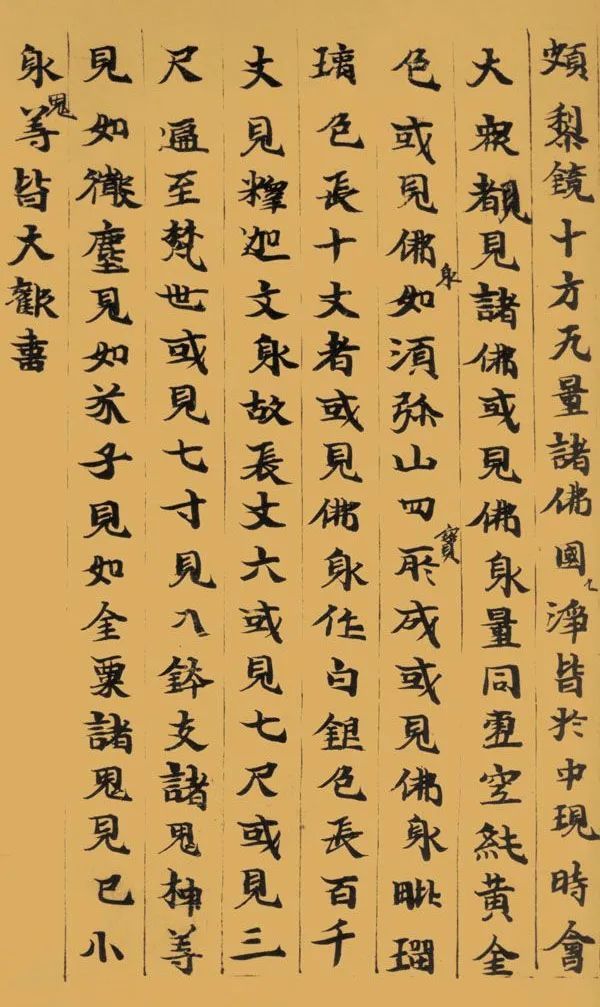 頗梨鏡十方无量諸佛國乀淨皆於中現時會
大衆覩見諸佛或見佛身量同虛空純黃金
色或見佛身如須弥山四寶所成或見佛身毗瑠
璃色長十丈者或見佛身作白銀色長百千
丈見釋迦文身故長丈六或見七尺或見三
尺遍至梵世或見七寸見入鉢支諸鬼神等
見如微塵見如芥子見如金粟諸鬼見已小
身鬼等皆大歡喜